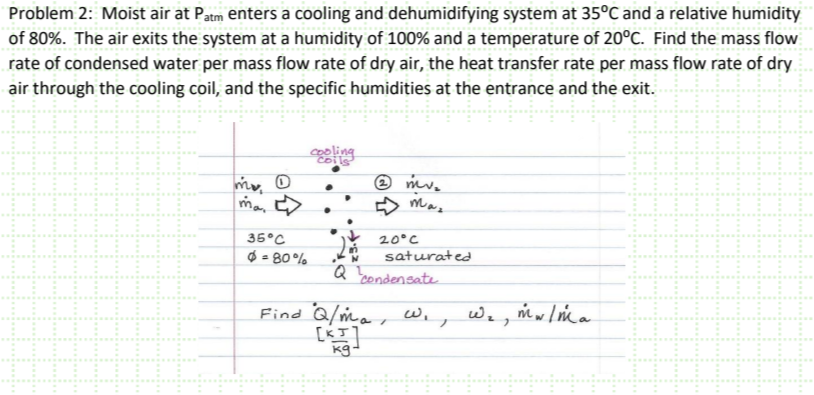 Problem 2: Moist air at Patm enters a cooling and dehumidifying system at 35°C and a relative humidity
of 80%. The air exits the system at a humidity of 100% and a temperature of 20°C. Find the mass flow
rate of condensed water per mass flow rate of dry air, the heat transfer rate per mass flow rate of dry
air through the cooling coil, and the specific humidities at the entrance and the exit.
cooling
coils
ṁv₁ ① ② ṁv₂
ṁa₁ ⇨ ⇨ ṁa₂
35°C 20°C
ø = 80% ṁw saturated
Q condensate
Find Q̇/ṁa, ω₁, ω₂, ṁw/ṁa
[kJ
kg]